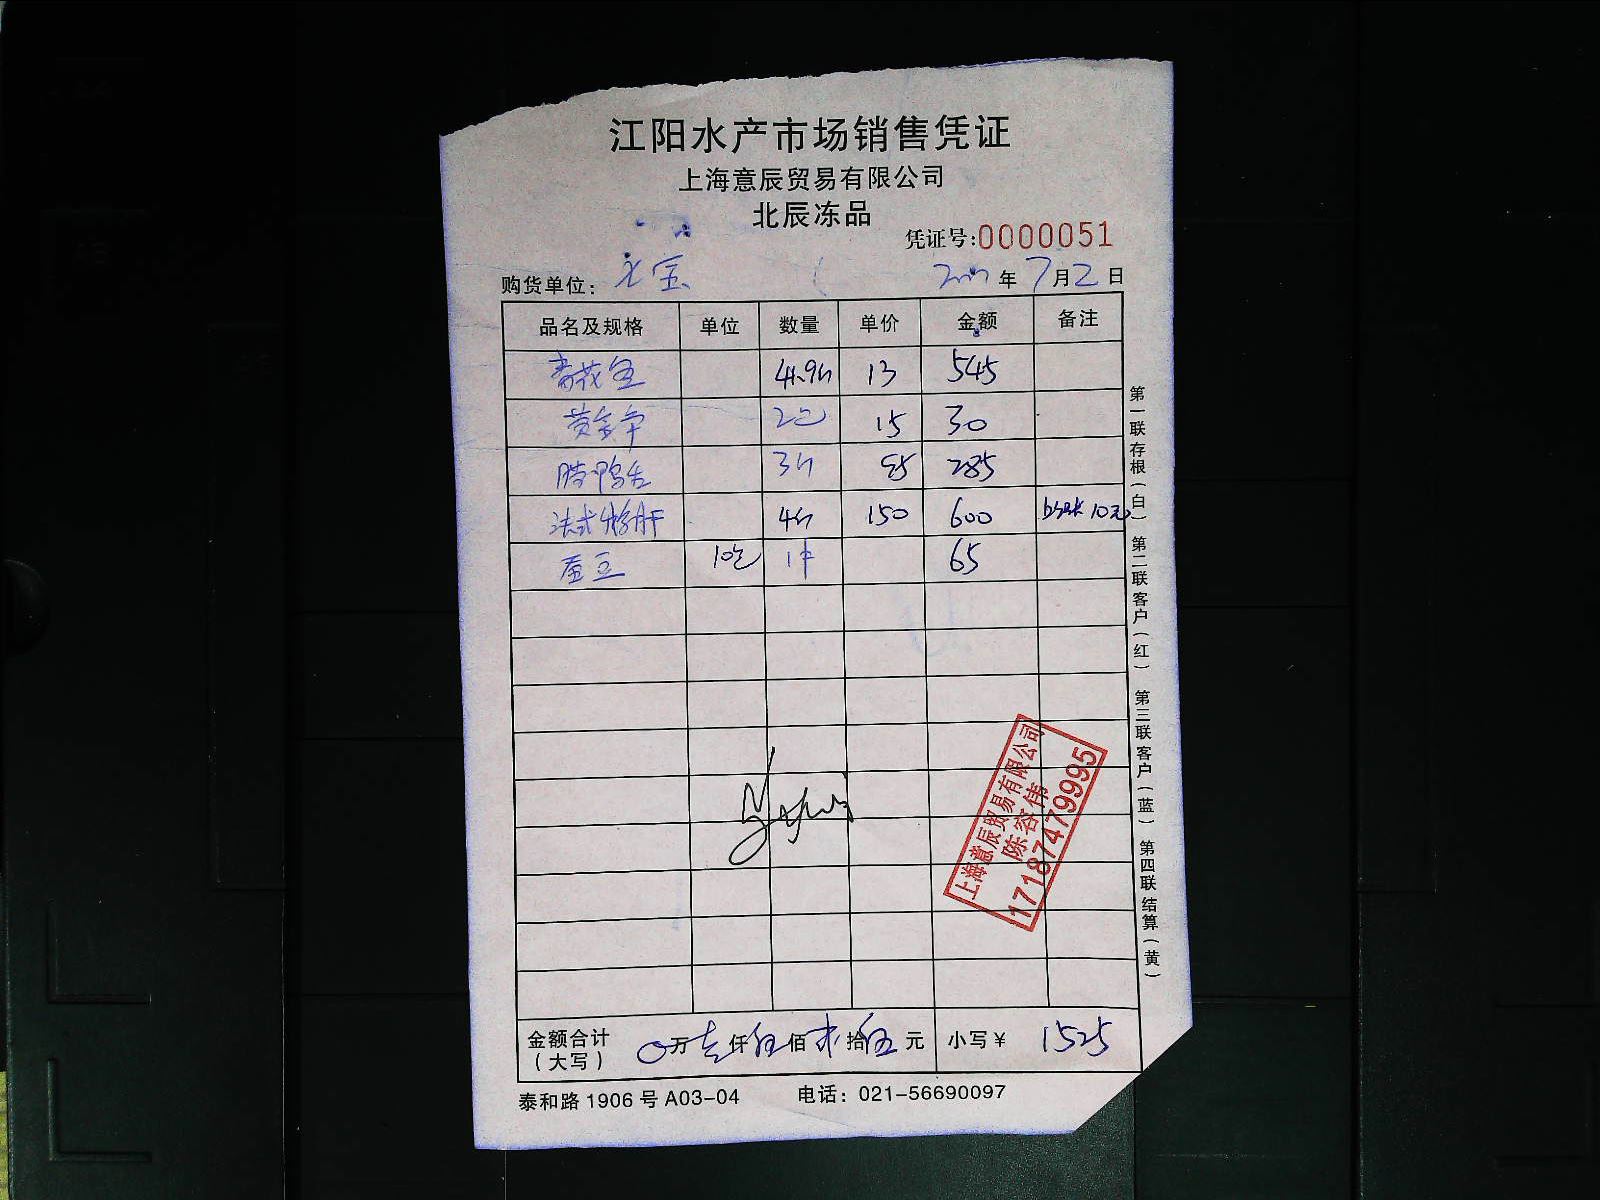 江阳水产市场销售凭证
上海意辰贸易有限公司
北辰冻品
凭证号:0000051
购货单位: 年 7月2日
品名及规格 单位 数量 单价 金额 备注
青花鱼 41.9斤 13 545
黄金 2包 15 30
鸭舌 3斤 95 285
法式 4斤 150 600 10元
蚕豆 10包 1件 65
金额合计
(大写) 0万 壹仟 伍佰 拾 伍元 小写¥ 1525
泰和路1906号A03-04 电话: 021-56690097
第一联存根(白) 第二联客户(红) 第三联客户(蓝) 第四联结算(黄)
上海意辰贸易有限公司
陈容伟
17187479995